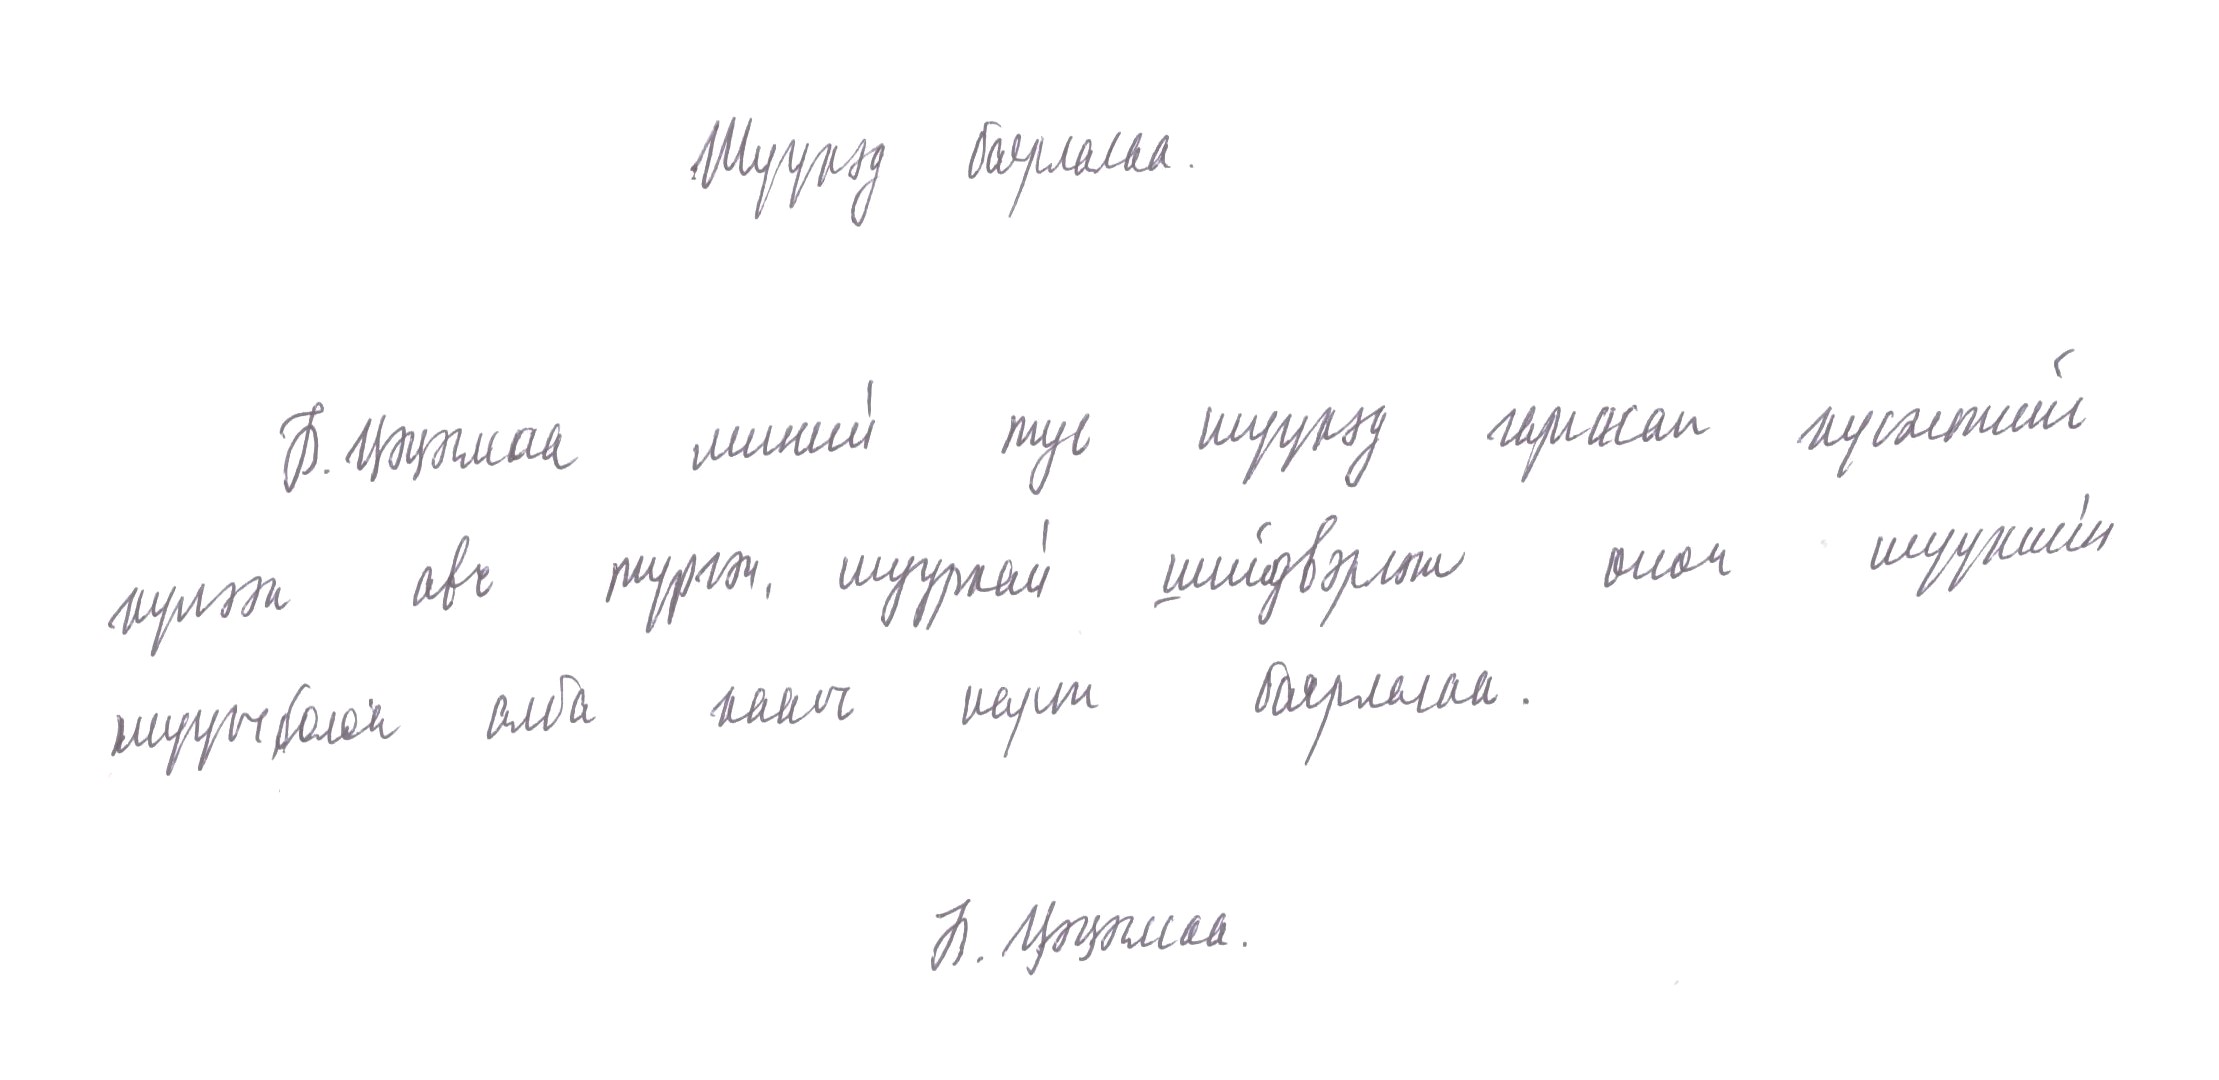 Шүүхэд баярлалаа.
Б. Цэцэгмаа миний тус шүүхэд гаргасан хүсэлтийг
хүлээж авч түргэн, шуурхай шийдвэрлэж өгсөн шүүхийн
шүүгч болон алба хаагч нарт баярлалаа.
Б. Цэцэгмаа.